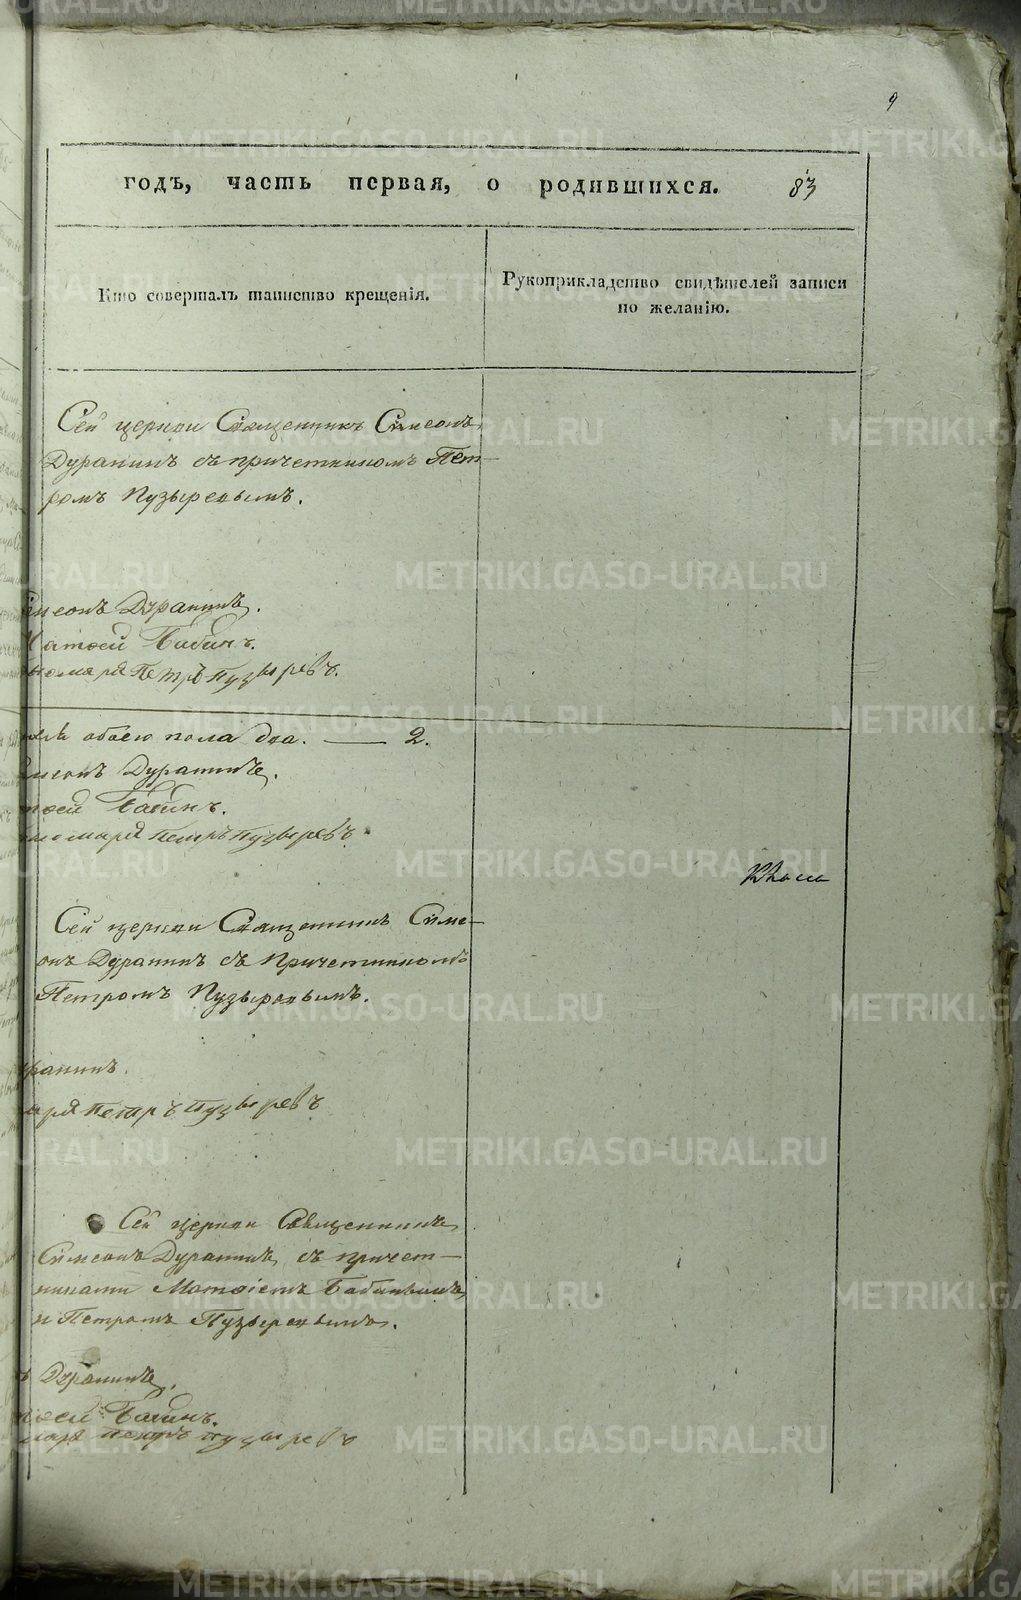 9
годъ, часть первая, о родившихся. 83
Кто совершалъ таинство крещенія.
Рукоприкладство свидѣтелей записи
по желанію.
Сей церкви Священникъ Симеонъ
Дуранинъ съ причетникомъ Пет-
ромъ Пузыревымъ.
имеонъ Дуранинъ.
Матвей Бабинъ.
ономаря Петръ Пузыревъ.
обоего пола два. — 2.
имеонъ Дуранинъ.
твей Бабинъ.
ономаря Петръ Пузыревъ.
Сей церкви Священникъ Симе-
онъ Дуранинъ съ Причетникомъ
Петромъ Пузыревымъ.
уранинъ.
маря Петръ Пузыревъ
Сей церкви Священникъ
Симеонъ Дуранинъ, съ причет-
никами Матвіемъ Бабинымъ
и Петромъ Пузыревымъ.
ъ Дуранинъ.
твей Бабинъ.
маря Петръ Пузыревъ
METRIKI.GASO-URAL.RU